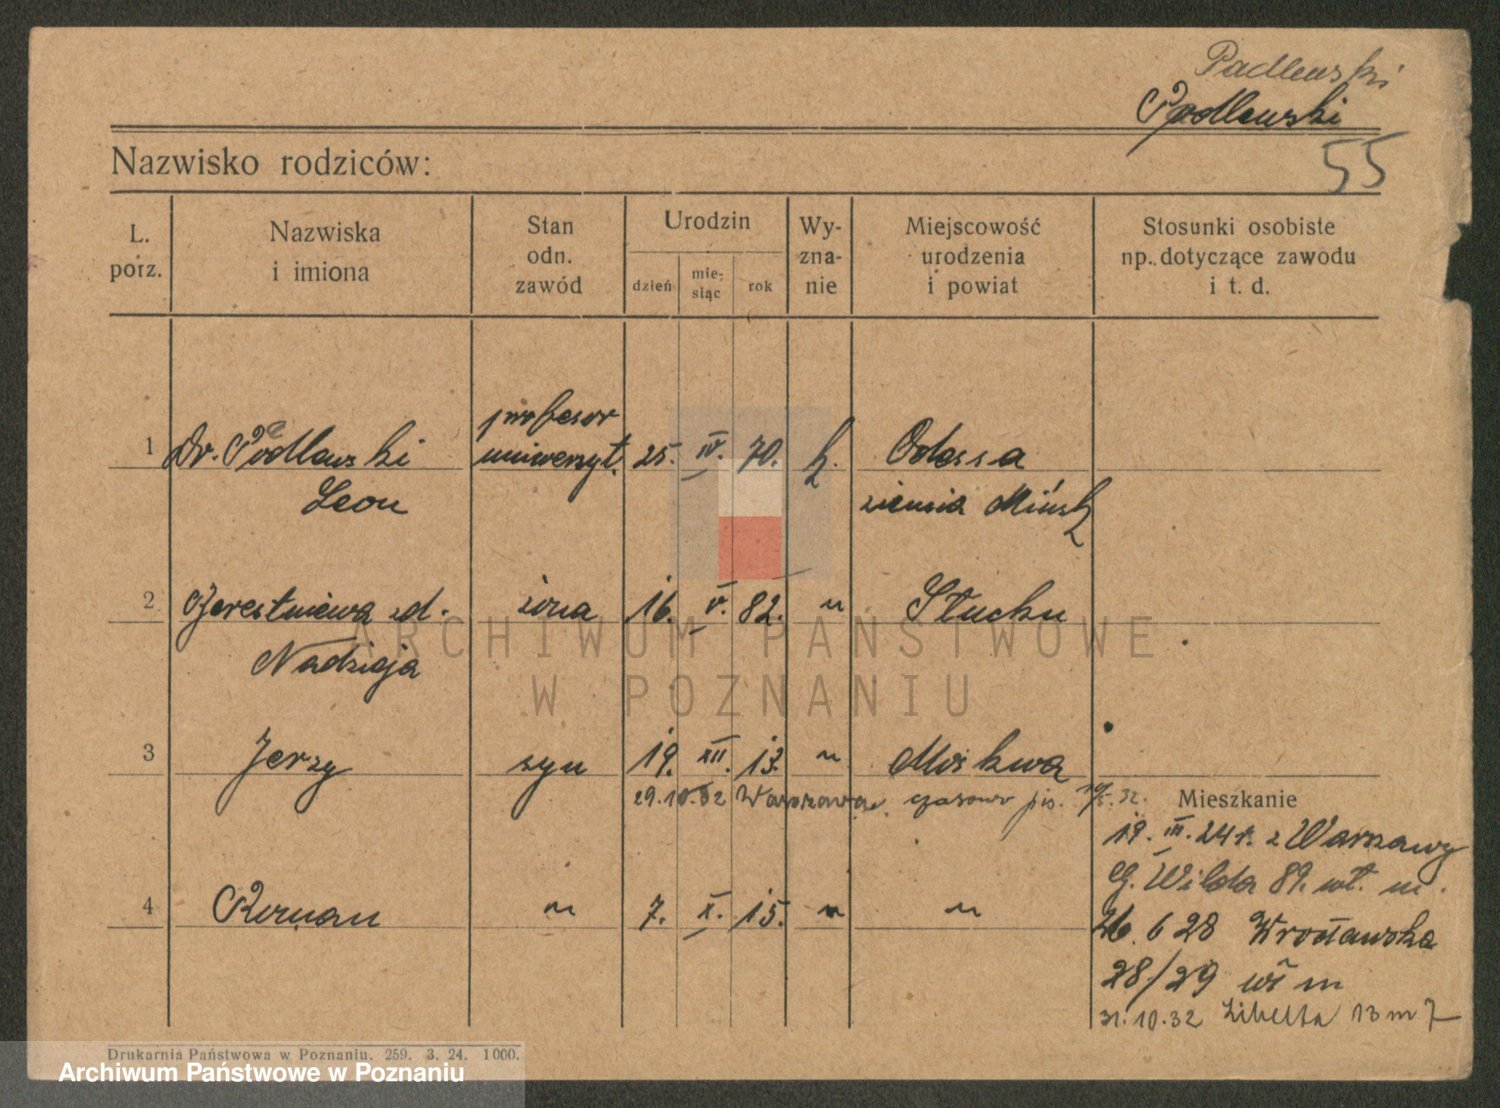 Padlewski
Podlewski
55
Nazwisko rodziców:
L. porz.
Nazwiska i imiona
Stan odn. zawód
Urodzin
dzień
mie-siąc
rok
Wy-zna-nie
Miejscowość urodzenia i powiat
Stosunki osobiste np. dotyczące zawodu i t. d.
1 Dr. Podlewski profesor uniwersyt. 25. IV. 70. k. Odessa
Leon ziemia Mińsk
2 zd. żona 16. V. 82. " Słucku
Nadzieja
3 Jerzy syn 19. XII. 13. " Moskwa
29.10.32 Warszawa czasowo pis.
Mieszkanie
19. III. 24 r. z Warszawy
G. Wilda 89. wł. m.
4 Roman " 7. X. 15. " "
26. 6 28 Wrocławska
28/29 wł m
31.10.32 Libelta 13 m 7
Drukarnia Państwowa w Poznaniu. 259. 3. 24. 1000.
ARCHIWUM PAŃSTWOWE
W POZNANIU
Archiwum Państwowe w Poznaniu